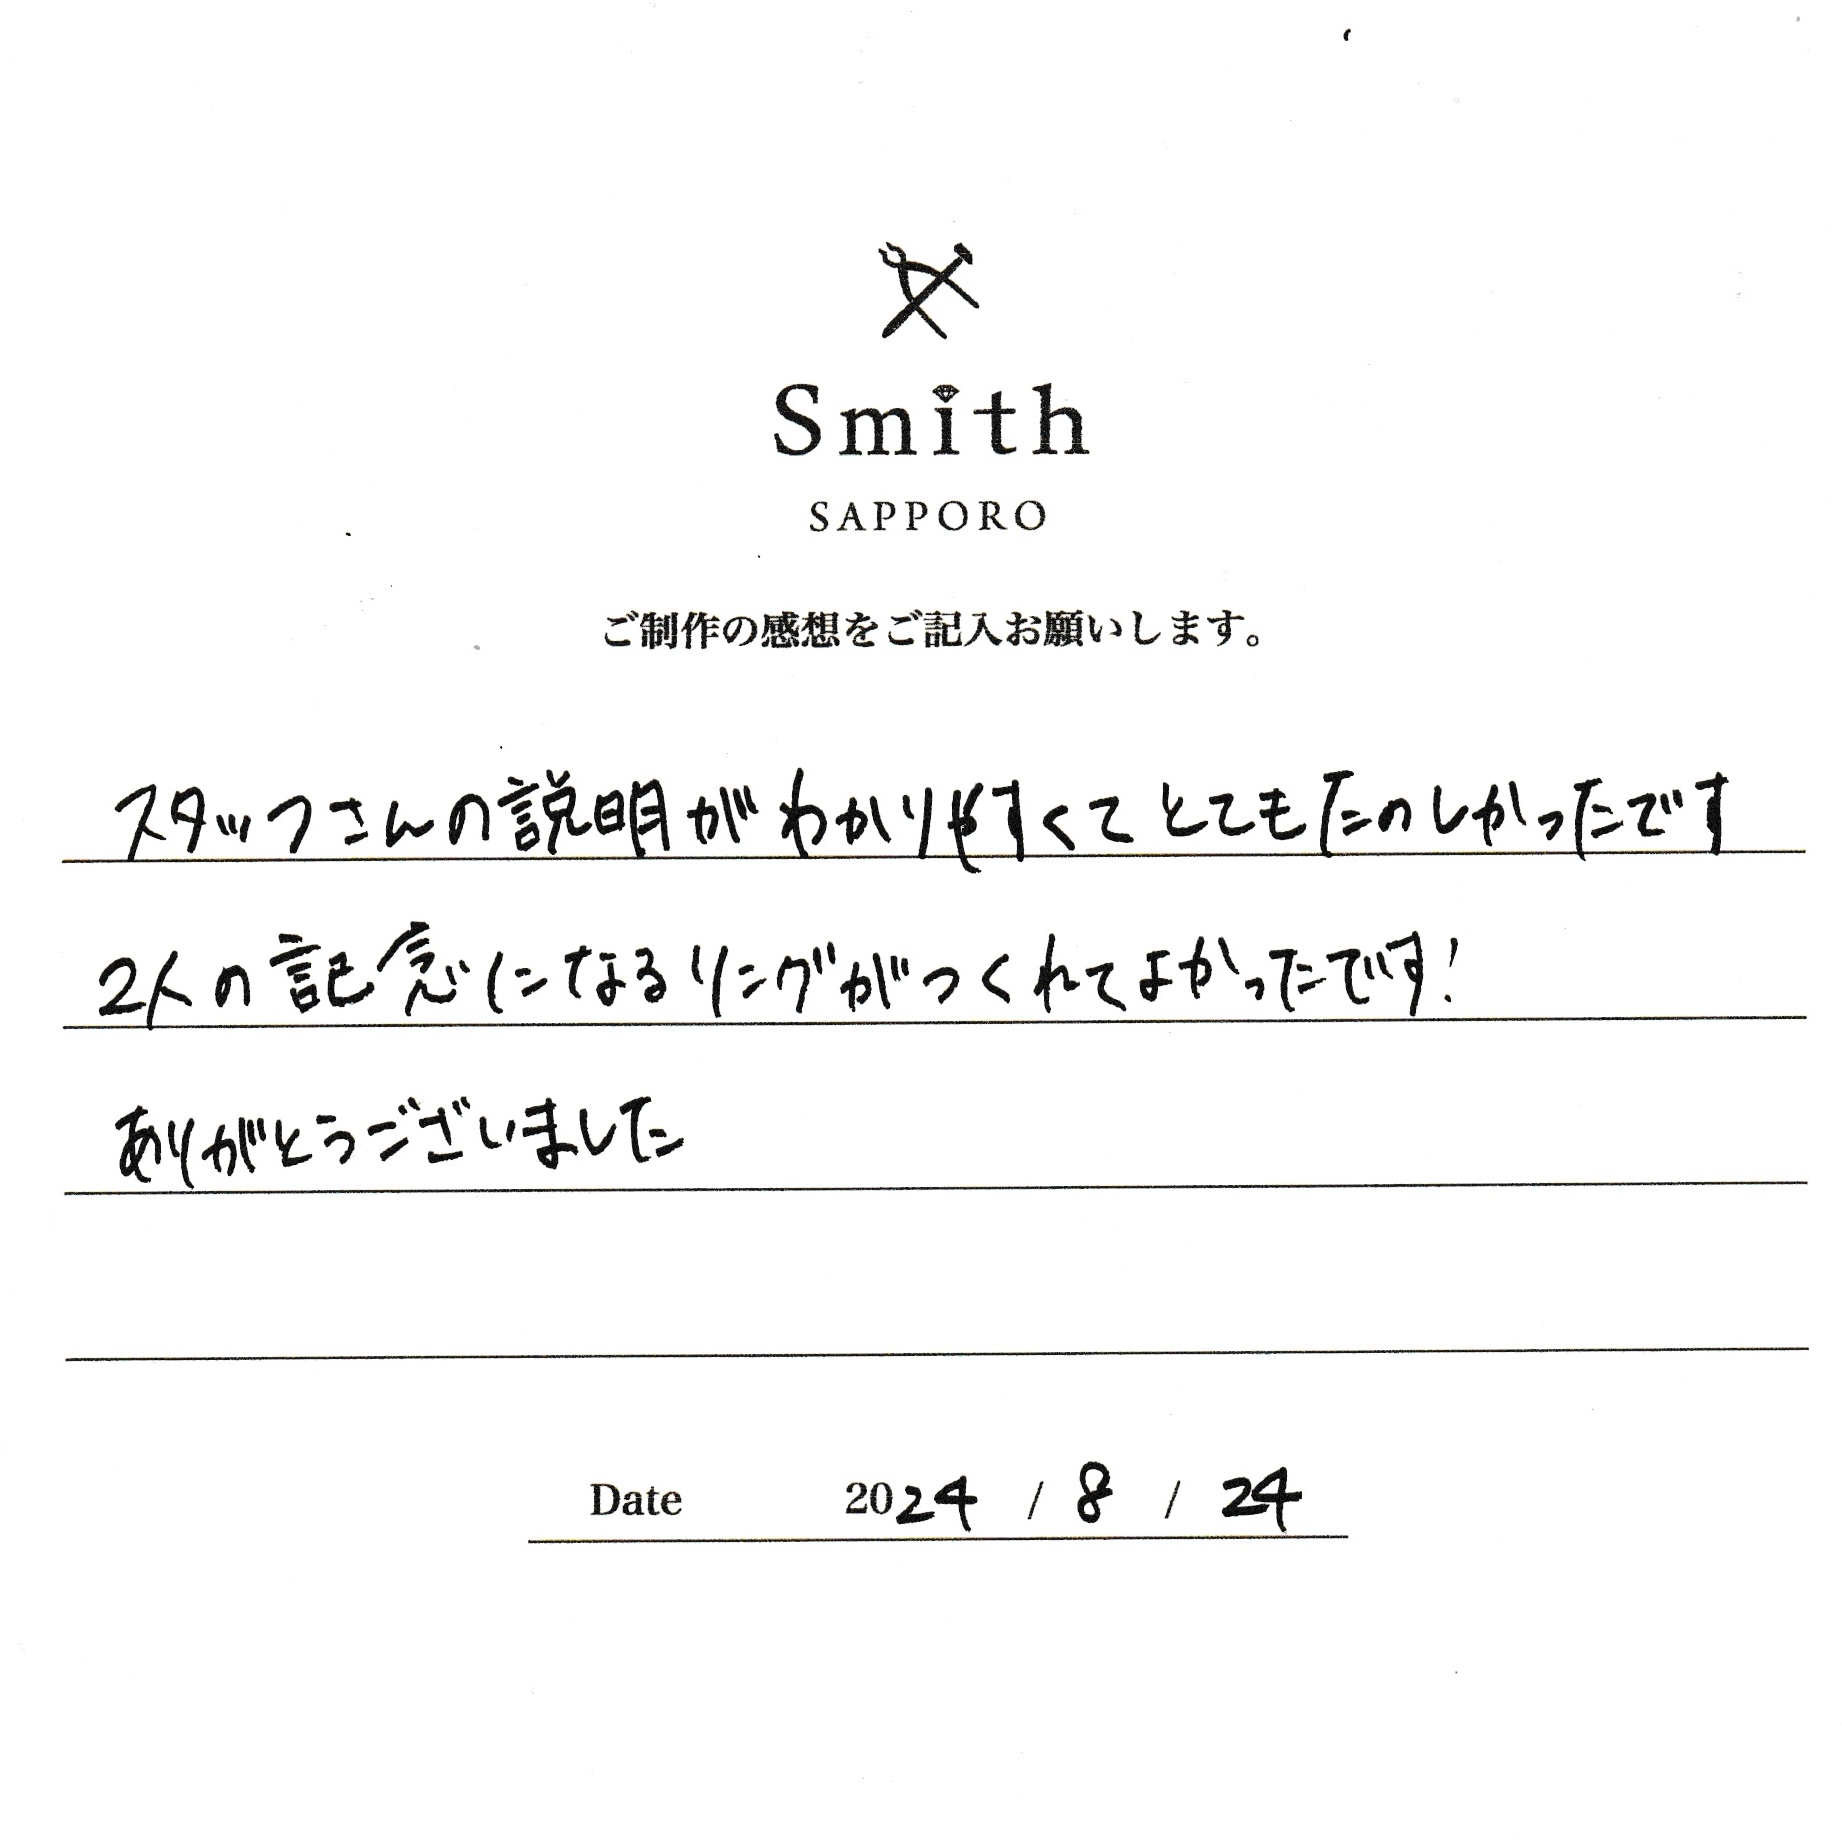 Smith
SAPPORO
ご制作の感想をご記入お願いします。
スタッフさんの説明がわかりやすくてとてもたのしかったです
2人の記念になるリングがつくれてよかったです!
ありがとうございました
Date 2024 / 8 / 24